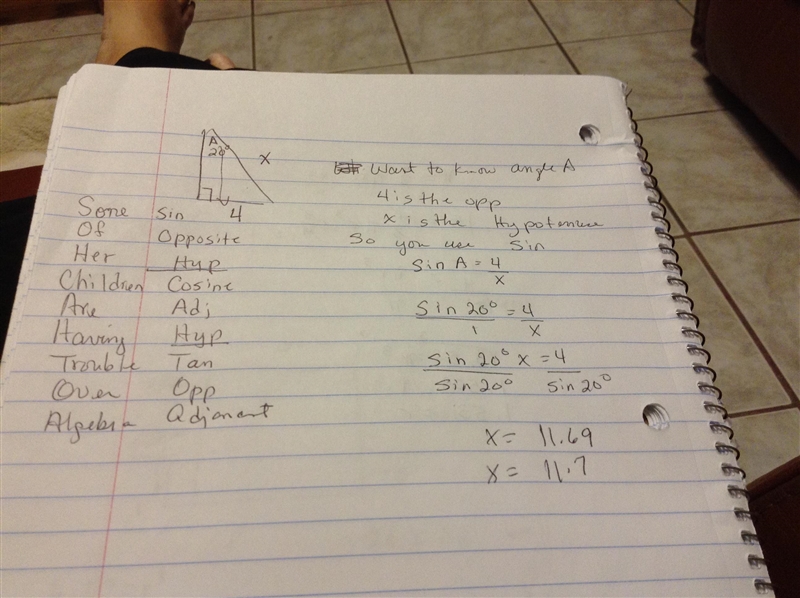 A
20°
x
4
Some Sin
Of Opposite
Her Hyp
Children Cosine
Are Adj
Having Hyp
Trouble Tan
Over Opp
Algebra Adjanant
Want to know angle A
4 is the opp
x is the Hypotenuse
So you use Sin
Sin A = 4/x
Sin 20°/1 = 4/x
Sin 20° x/Sin 20° = 4/Sin 20°
x = 11.69
x = 11.7